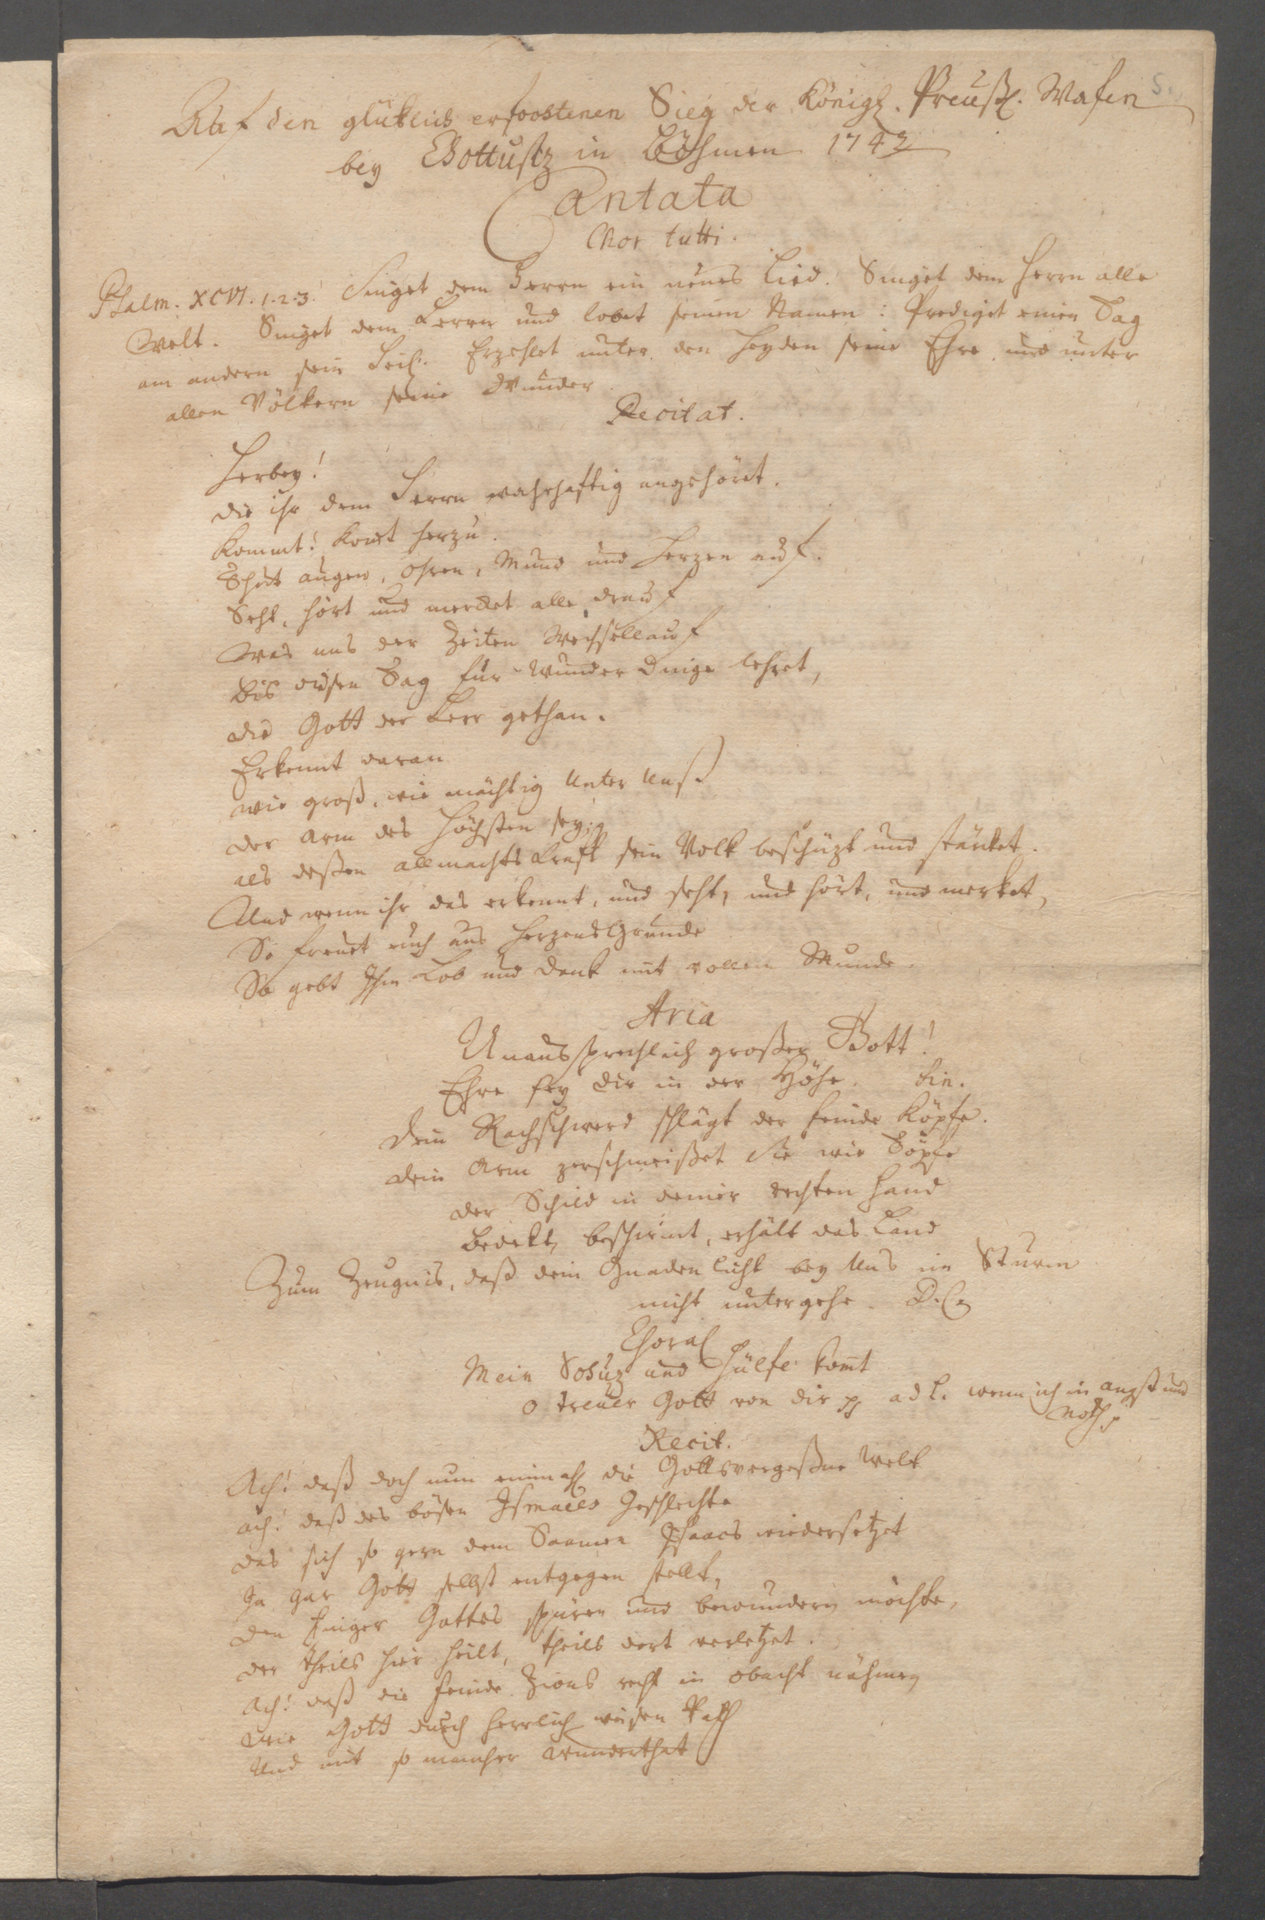 Auf den glüklich erfochtenen Sieg der Königl. Preußl. Wafen
bey Chottusitz in Böhmen 1742
Cantata
Chor tutti.
Psalm: XCVI. 1-2-3. Singet dem Herrn ein neues Lied. Singet dem Herrn alle
Welt. Singet dem Herrn und lobet seinen Namen: Prediget einen Tag
am andern sein Heil. Erzehlet unter den Heyden seine Ehre, und unter
allen Völkern seine Wunder.
Recitat.
Herbey!
die ihr dem Herrn wahrhaftig angehöret.
Kommt! komt herzu.
Thut augen, Ohren, Mund und Herzen auf.
Seht, hört und merket alle drauf
Was uns der Zeiten Wechsellauf
Bis diesen Tag für Wunder Dinge lehret,
die Gott der Herr gethan.
Erkennt daran
wie groß, wie mächtig unter unß
der Arm des Höchsten sey,
als deßen allmachts Kraft sein Volk beschüzt und stärket.
Und wenn ihr das erkennt, und seht, und hört, und merket,
So freuet euch aus Herzens Grunde
So gebt Ihm Lob und Dank mit vollem Munde.
Aria
Unaussprechlich großer Gott!
Ehre sey dir in der Höhe. bin.
Dein Rachschwerd schlägt der Feinde Köpfe.
dein Arm zerschmeißet sie wie Töpfe
der Schild in deiner rechten Hand
Bedekt, beschirmt, erhält das Land
Zum Zeugnis, daß dein Gnadenlicht bey uns im Sturm
nicht untergehe. D.C.
Choral
Mein Schuz und Hülfe komt
o treuer Gott von dir pp ad l. wenn ich in angst und
Noth p
Recit.
Ach! daß doch nun einmahl die Gottsvergeßne Welt
ach! daß des bösen Ismaels Geschlechte
das sich so gern dem Saamen Isaacs wiedersetzet
Ja gar Gott selbst entgegen stellt,
den Finger Gottes spüren und bewundern möchte,
der theils hier heilt, theils dort verletzet.
Ach! daß die Feinde Zions recht in obacht nähmen
wie Gott durch herrlich weisen Rath
Und mit so mancher Wunderthat